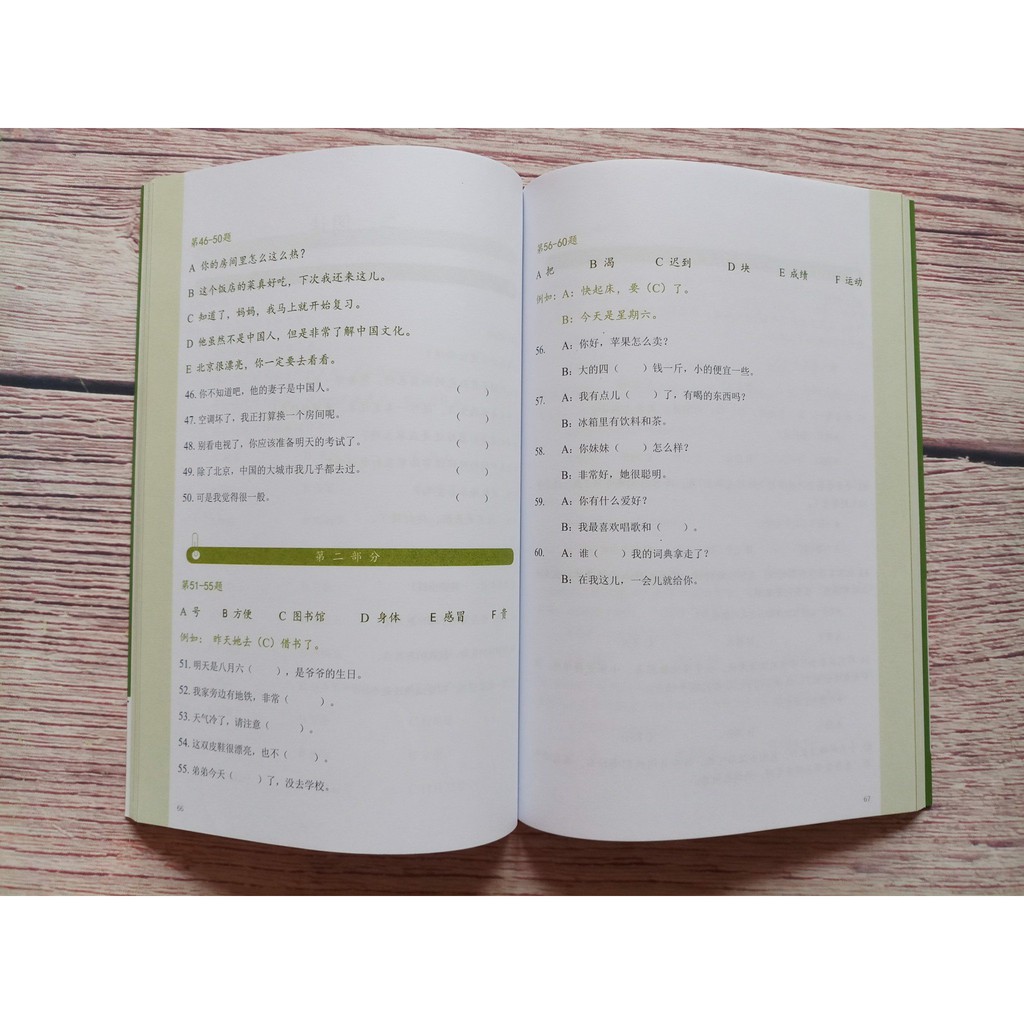 第46-50题
A 你的房间里怎么这么热？
B 这个饭店的菜真好吃，下次我还来这儿。
C 知道了，妈妈，我马上就开始复习。
D 他虽然不是中国人，但是非常了解中国文化。
E 北京很漂亮，你一定要去看看。
46. 你不知道吧，他的妻子是中国人。 （ ）
47. 空调坏了，我正打算换一个房间呢。 （ ）
48. 别看电视了，你应该准备明天的考试了。 （ ）
49. 除了北京，中国的大城市我几乎都去过。 （ ）
50. 可是我觉得很一般。 （ ）
第二部分
第51-55题
A 号 B 方便 C 图书馆 D 身体 E 感冒 F 贵
例如： 昨天她去（C）借书了。
51. 明天是八月六（ ），是爷爷的生日。
52. 我家旁边有地铁，非常（ ）。
53. 天气冷了，请注意（ ）。
54. 这双皮鞋很漂亮，也不（ ）。
55. 弟弟今天（ ）了，没去学校。
66
第56-60题
A 把 B 渴 C 迟到 D 块 E 成绩 F 运动
例如： A：快起床，要（C）了。
B：今天是星期六。
56. A：你好，苹果怎么卖？
B：大的四（ ）钱一斤，小的便宜一些。
57. A：我有点儿（ ）了，有喝的东西吗？
B：冰箱里有饮料和茶。
58. A：你妹妹（ ）怎么样？
B：非常好，她很聪明。
59. A：你有什么爱好？
B：我最喜欢唱歌和（ ）。
60. A：谁（ ）我的词典拿走了？
B：在我这儿，一会儿就给你。
67